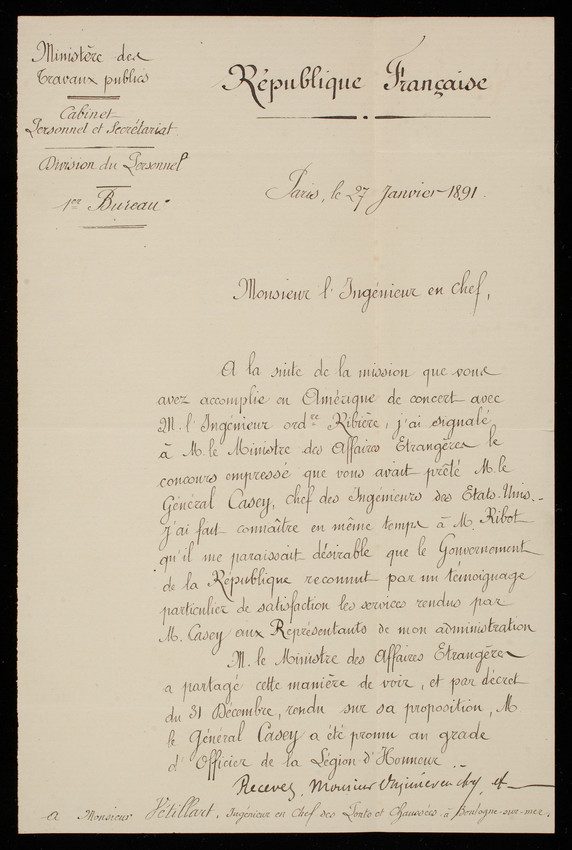 Ministère des
Travaux publics
Cabinet
Personnel et Secrétariat
Division du Personnel
1er Bureau
République Française
Paris, le 27 Janvier 1891
Monsieur l'Ingénieur en chef,
A la suite de la mission que vous
avez accomplie en Amérique de concert avec
M. l'Ingénieur ordre Ribière, j'ai signalé
à M. le Ministre des Affaires Etrangères le
concours empressé que vous avait prêté M. le
Général Casey, chef des Ingénieurs des Etats-Unis.-
J'ai fait connaître en même temps à M. Ribot
qu'il me paraissait désirable que le Gouvernement
de la République reconnut par un témoignage
particulier de satisfaction les services rendus par
M. Casey aux Représentants de mon administration
M. le Ministre des Affaires Etrangères
a partagé cette manière de voir, et par décret
du 31 Décembre, rendu sur sa proposition, M
le Général Casey a été promu au grade
d'Officier de la Légion d'Honneur.-
Recevez, Monsieur l'Ingénieur en chef, et
A Monsieur Vétillart, Ingénieur en Chef des Ponts et Chaussées à Boulogne-sur-mer.